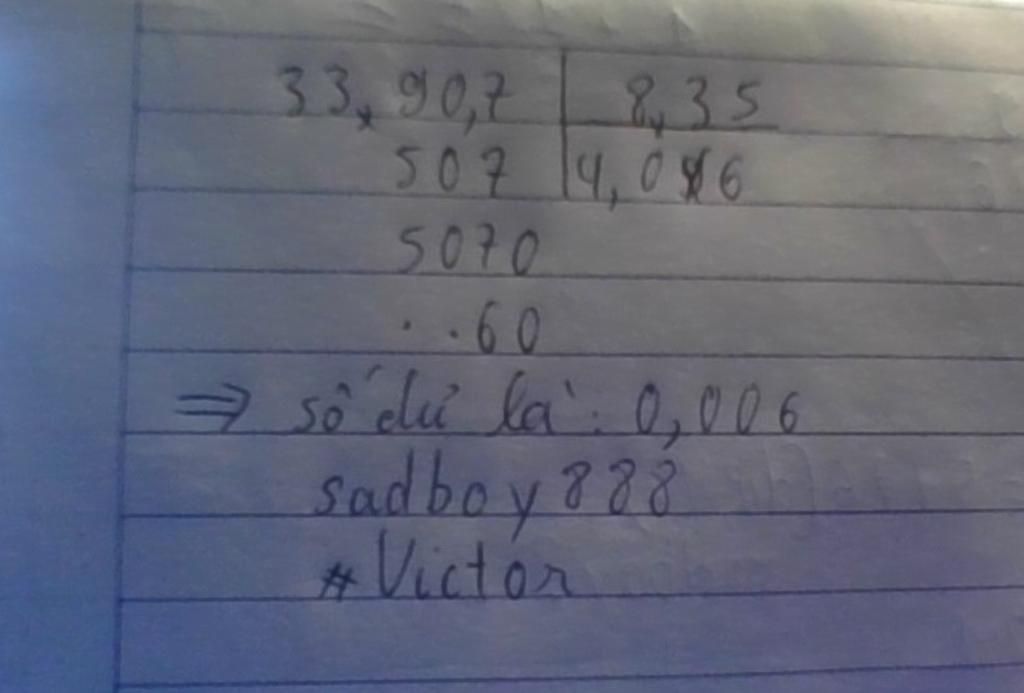 33,90,7 8,35
507 4,06
5070
..60
⇒ số dư là: 0,006
sadboy888
*Victor